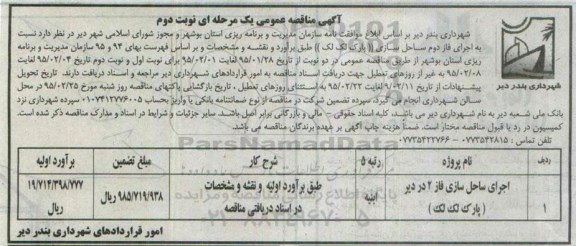 آگهی مناقصه عمومی یک مرحله ای نوبت دوم
شهرداری بندر دیر بر اساس ابلاغ موافقت نامه سازمان مدیریت و برنامه ریزی استان بوشهر و مجوز شورای اسلامی شهر دیر در نظر دارد نسبت
به اجرای فاز دوم ساحل سازی (( پارک لک لک )) طبق برآورد و نقشه و مشخصات و بر اساس فهرست بهای ۹۴ و ۹۵ سازمان مدیریت و برنامه
ریزی استان بوشهر از طریق مناقصه عمومی در دو نوبت از تاریخ ۹۵/۰۱/۲۸ لغایت ۹۵/۰۲/۰۱ برای نوبت اول و نوبت دوم تاریخ ۹۵/۰۲/۰۴ لغایت
۹۵/۰۲/۰۸ به غیر از روزهای تعطیل جهت دریافت اسناد مناقصه به امور قراردادهای شهرداری دیر مراجعه و اسناد دریافت دارند. تاریخ تحویل
پیشنهادات از تاریخ ۹۵/۰۲/۱۱ لغایت ۹۵/۰۲/۲۲ به استثنای روزهای تعطیل ، تاریخ بازگشایی پاکتهای مناقصه روز شنبه مورخ ۹۵/۰۲/۲۵ در محل
سالن شهرداری انجام می گیرد. سپرده تضمین شرکت در مناقصه از نوع ضمانتنامه بانکی یا واریز بحساب ۰۱۰۷۴۱۲۷۷۶۰۰۵ سپرده شهرداری نزد
بانک ملی شعبه دیر به نام شهرداری دیر می باشد. کلیه اسناد حقوقی – مالی و بازرگانی برابر اصل باشد. سایر جزئیات و شرایط در اسناد و مدارک مناقصه ذکر شده است.
کمیسیون در رد یا قبول مناقصه مختار است. ضمناً هزینه چاپ آگهی بر عهده برندگان مناقصه می باشد.
تلفن تماس : ۰۷۷۳۵۴۲۸۱۵ – ۰۷۷۳۵۴۲۲۷۶۶
شهرداری بندر دیر
ردیف نام پروژه رتبه ۵ شرح کار مبلغ تضمین برآورد اولیه
۱ اجرای ساحل سازی فاز ۲ در دیر ( پارک لک لک ) ابنیه طبق برآورد اولیه و نقشه و مشخصات در اسناد دریافتی مناقصه ۹۸۵/۷۱۹/۹۳۸ ریال ۱۹/۷۱۴/۳۹۸/۷۷۷ ریال
امور قراردادهای شهرداری بندر دیر
ParsNamadData